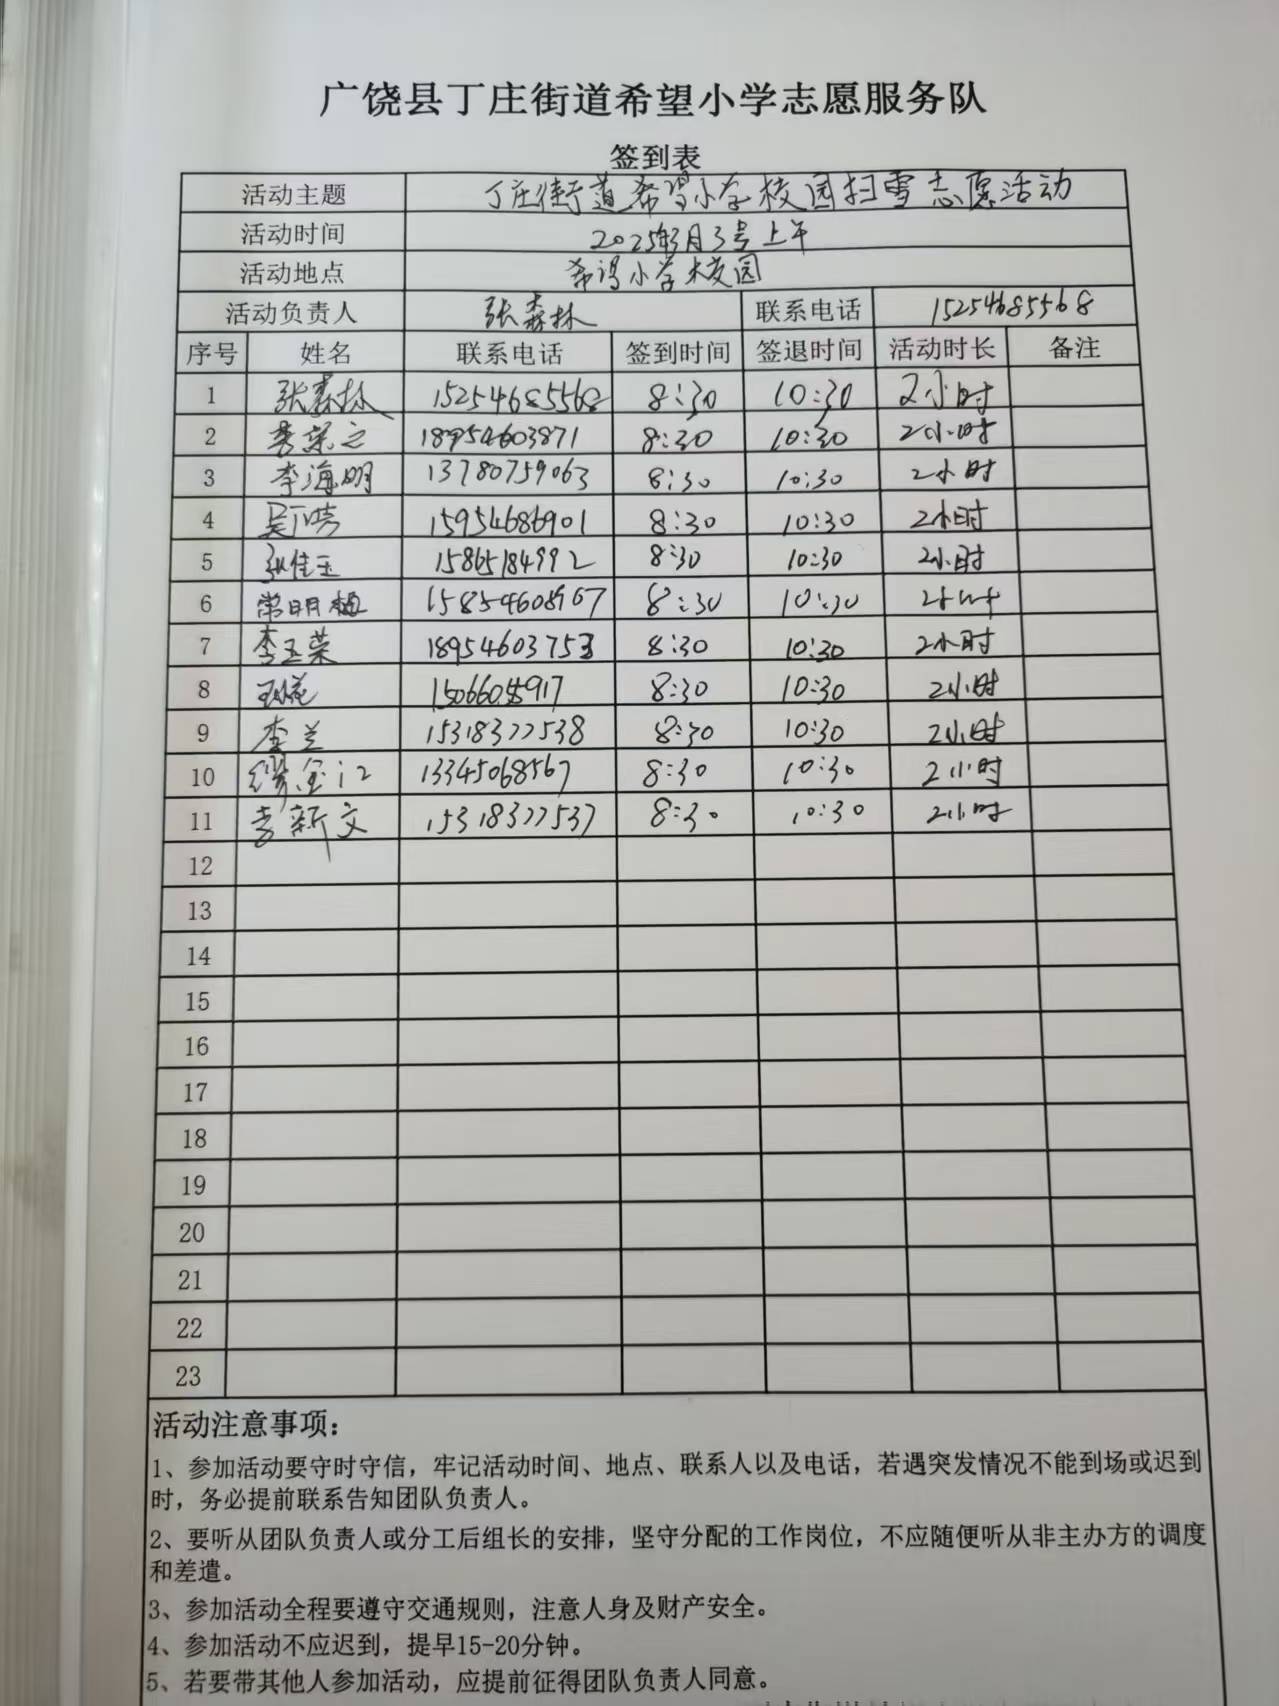 广饶县丁庄街道希望小学志愿服务队
签到表
活动主题 丁庄街道希望小学校园扫雪志愿活动
活动时间 2025年3月3号上午
活动地点 希望小学校园
活动负责人 张森林 联系电话 15254685568
序号 姓名 联系电话 签到时间 签退时间 活动时长 备注
1 张森林 15254685568 8:30 10:30 2小时
2 18954603871 8:30 10:30 2小时
3 李海明 13780759063 8:30 10:30 2小时
4 15954686901 8:30 10:30 2小时
5 张佳玉 15865184992 8:30 10:30 2小时
6 常明梅 15854608967 8:30 10:30 2小时
7 李玉荣 18954603753 8:30 10:30 2小时
8 8:30 10:30 2小时
9 李兰 15318377538 8:30 10:30 2小时
10 缪金江 13345068567 8:30 10:30 2小时
11 李新文 15318377537 8:30 10:30 2小时
12
13
14
15
16
17
18
19
20
21
22
23
活动注意事项：
1、参加活动要守时守信，牢记活动时间、地点、联系人以及电话，若遇突发情况不能到场或迟到
时，务必提前联系告知团队负责人。
2、要听从团队负责人或分工后组长的安排，坚守分配的工作岗位，不应随便听从非主办方的调度
和差遣。
3、参加活动全程要遵守交通规则，注意人身及财产安全。
4、参加活动不应迟到，提早15-20分钟。
5、若要带其他人参加活动，应提前征得团队负责人同意。